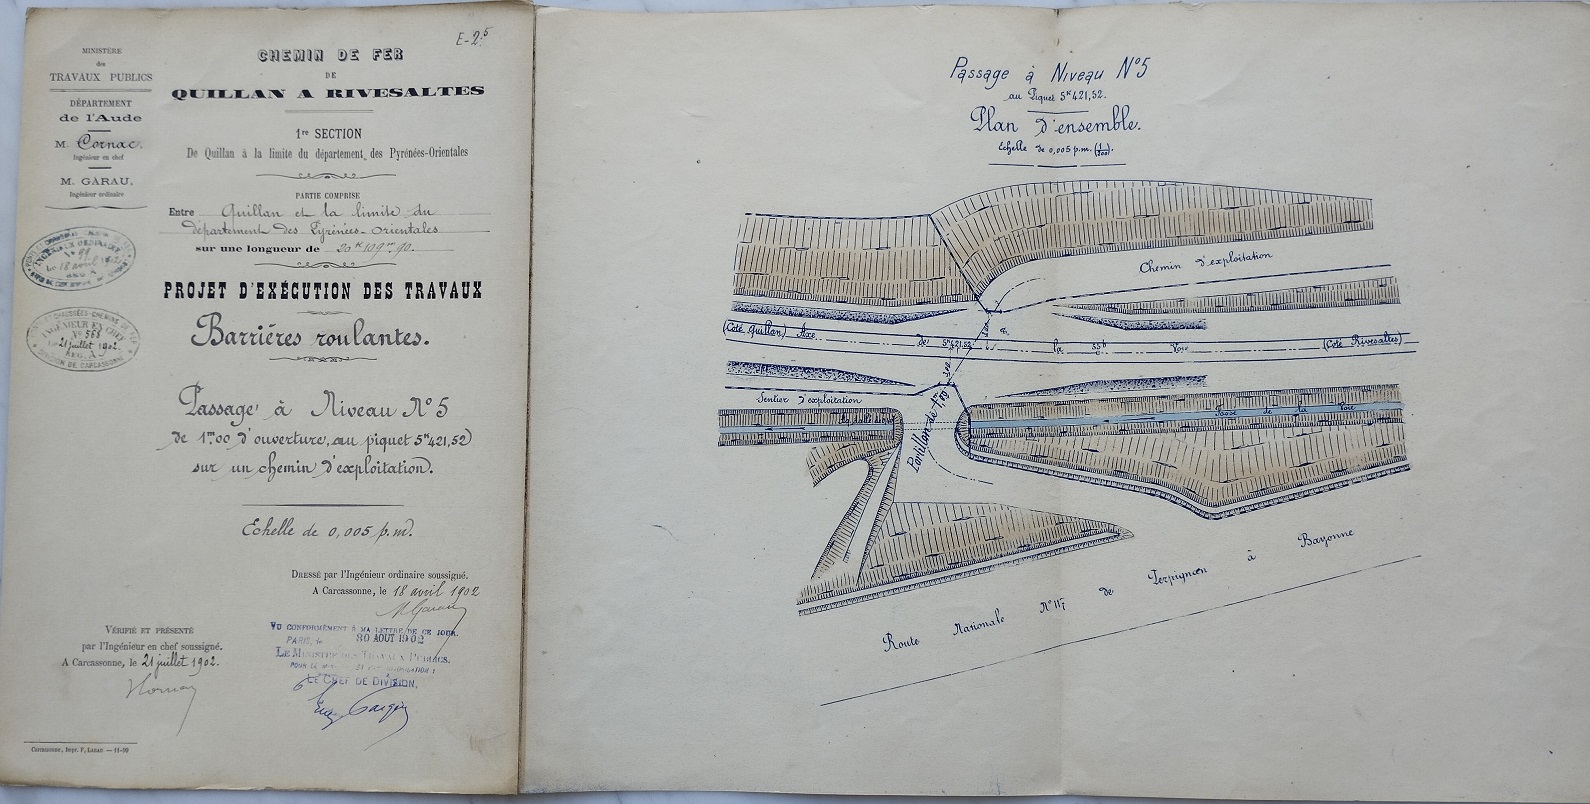 E-2.5
MINISTÈRE
des
TRAVAUX PUBLICS
DÉPARTEMENT
de l'Aude
M. Cornac,
Ingénieur en chef
M. GARAU,
Ingénieur ordinaire
INGÉNIEUR ORDINAIRE
Le 18 avril 1902
INGÉNIEUR EN CHEF
N° 568
21 juillet 1902
REG. A
DIVISION DE CARCASSONNE
CHEMIN DE FER
DE
QUILLAN A RIVESALTES
1re SECTION
De Quillan à la limite du département des Pyrénées-Orientales
PARTIE COMPRISE
Entre Quillan et la limite du
département des Pyrénées-Orientales
sur une longueur de 20k109m90.
PROJET D'EXÉCUTION DES TRAVAUX
Barrières roulantes.
Passage à Niveau N° 5
de 1m00 d'ouverture, au piquet 5k421,52)
sur un chemin d'exploitation.
Echelle de 0,005 p.m.
DRESSÉ par l'Ingénieur ordinaire soussigné.
A Carcassonne, le 18 avril 1902
M Garau
VU CONFORMÉMENT à MA LETTRE DE CE JOUR.
PARIS, le 30 AOUT 1902
LE MINISTRE DES TRAVAUX PUBLICS.
LE CHEF DE DIVISION,
VÉRIFIÉ ET PRÉSENTÉ
par l'Ingénieur en chef soussigné.
A Carcassonne, le 21 juillet 1902.
Carcassonne, Impr. F, Labau — 11-99
Passage à Niveau N°5
au Piquet 5k421,52.
Plan d'ensemble.
Echelle de 0,005 p.m. (1/200).
Chemin d'exploitation
(Coté Quillan) Axe de 5k421,52 la Voie (Coté Rivesaltes)
Sentier d'exploitation
Fossé de la Voie
Portillon de 1m,00
Route Nationale N° 117 de Perpignan à Bayonne